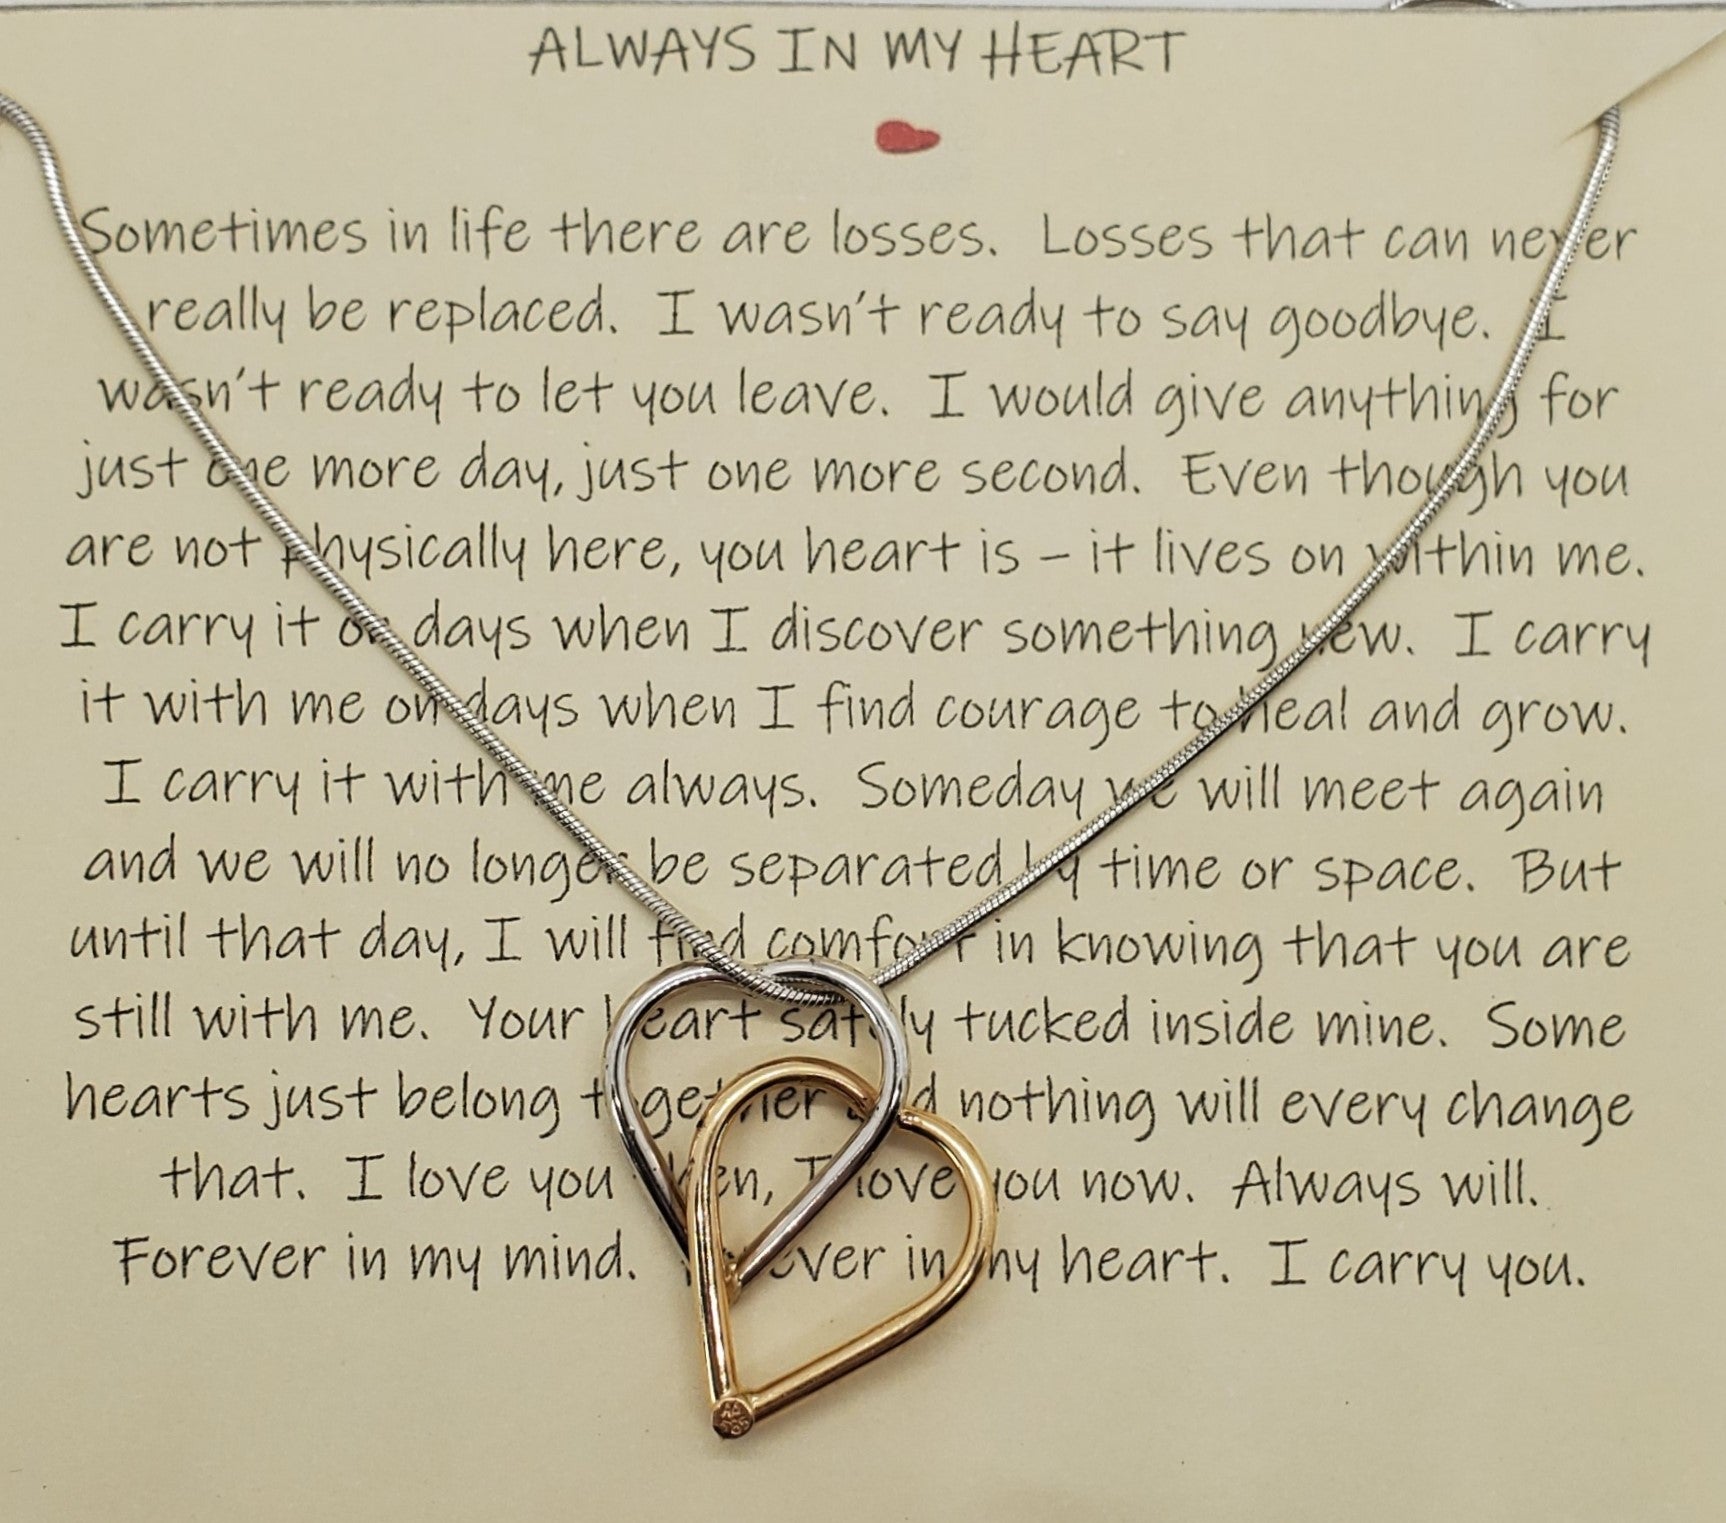 ALWAYS IN MY HEART
Sometimes in life there are losses. Losses that can never
really be replaced. I wasn't ready to say goodbye. I
wasn't ready to let you leave. I would give anything for
just one more day, just one more second. Even though you
are not physically here, you heart is – it lives on within me.
I carry it on days when I discover something new. I carry
it with me on days when I find courage to heal and grow.
I carry it with me always. Someday we will meet again
and we will no longer be separated by time or space. But
until that day, I will find comfort in knowing that you are
still with me. Your heart safely tucked inside mine. Some
hearts just belong together and nothing will every change
that. I love you then, I love you now. Always will.
Forever in my mind. Forever in my heart. I carry you.